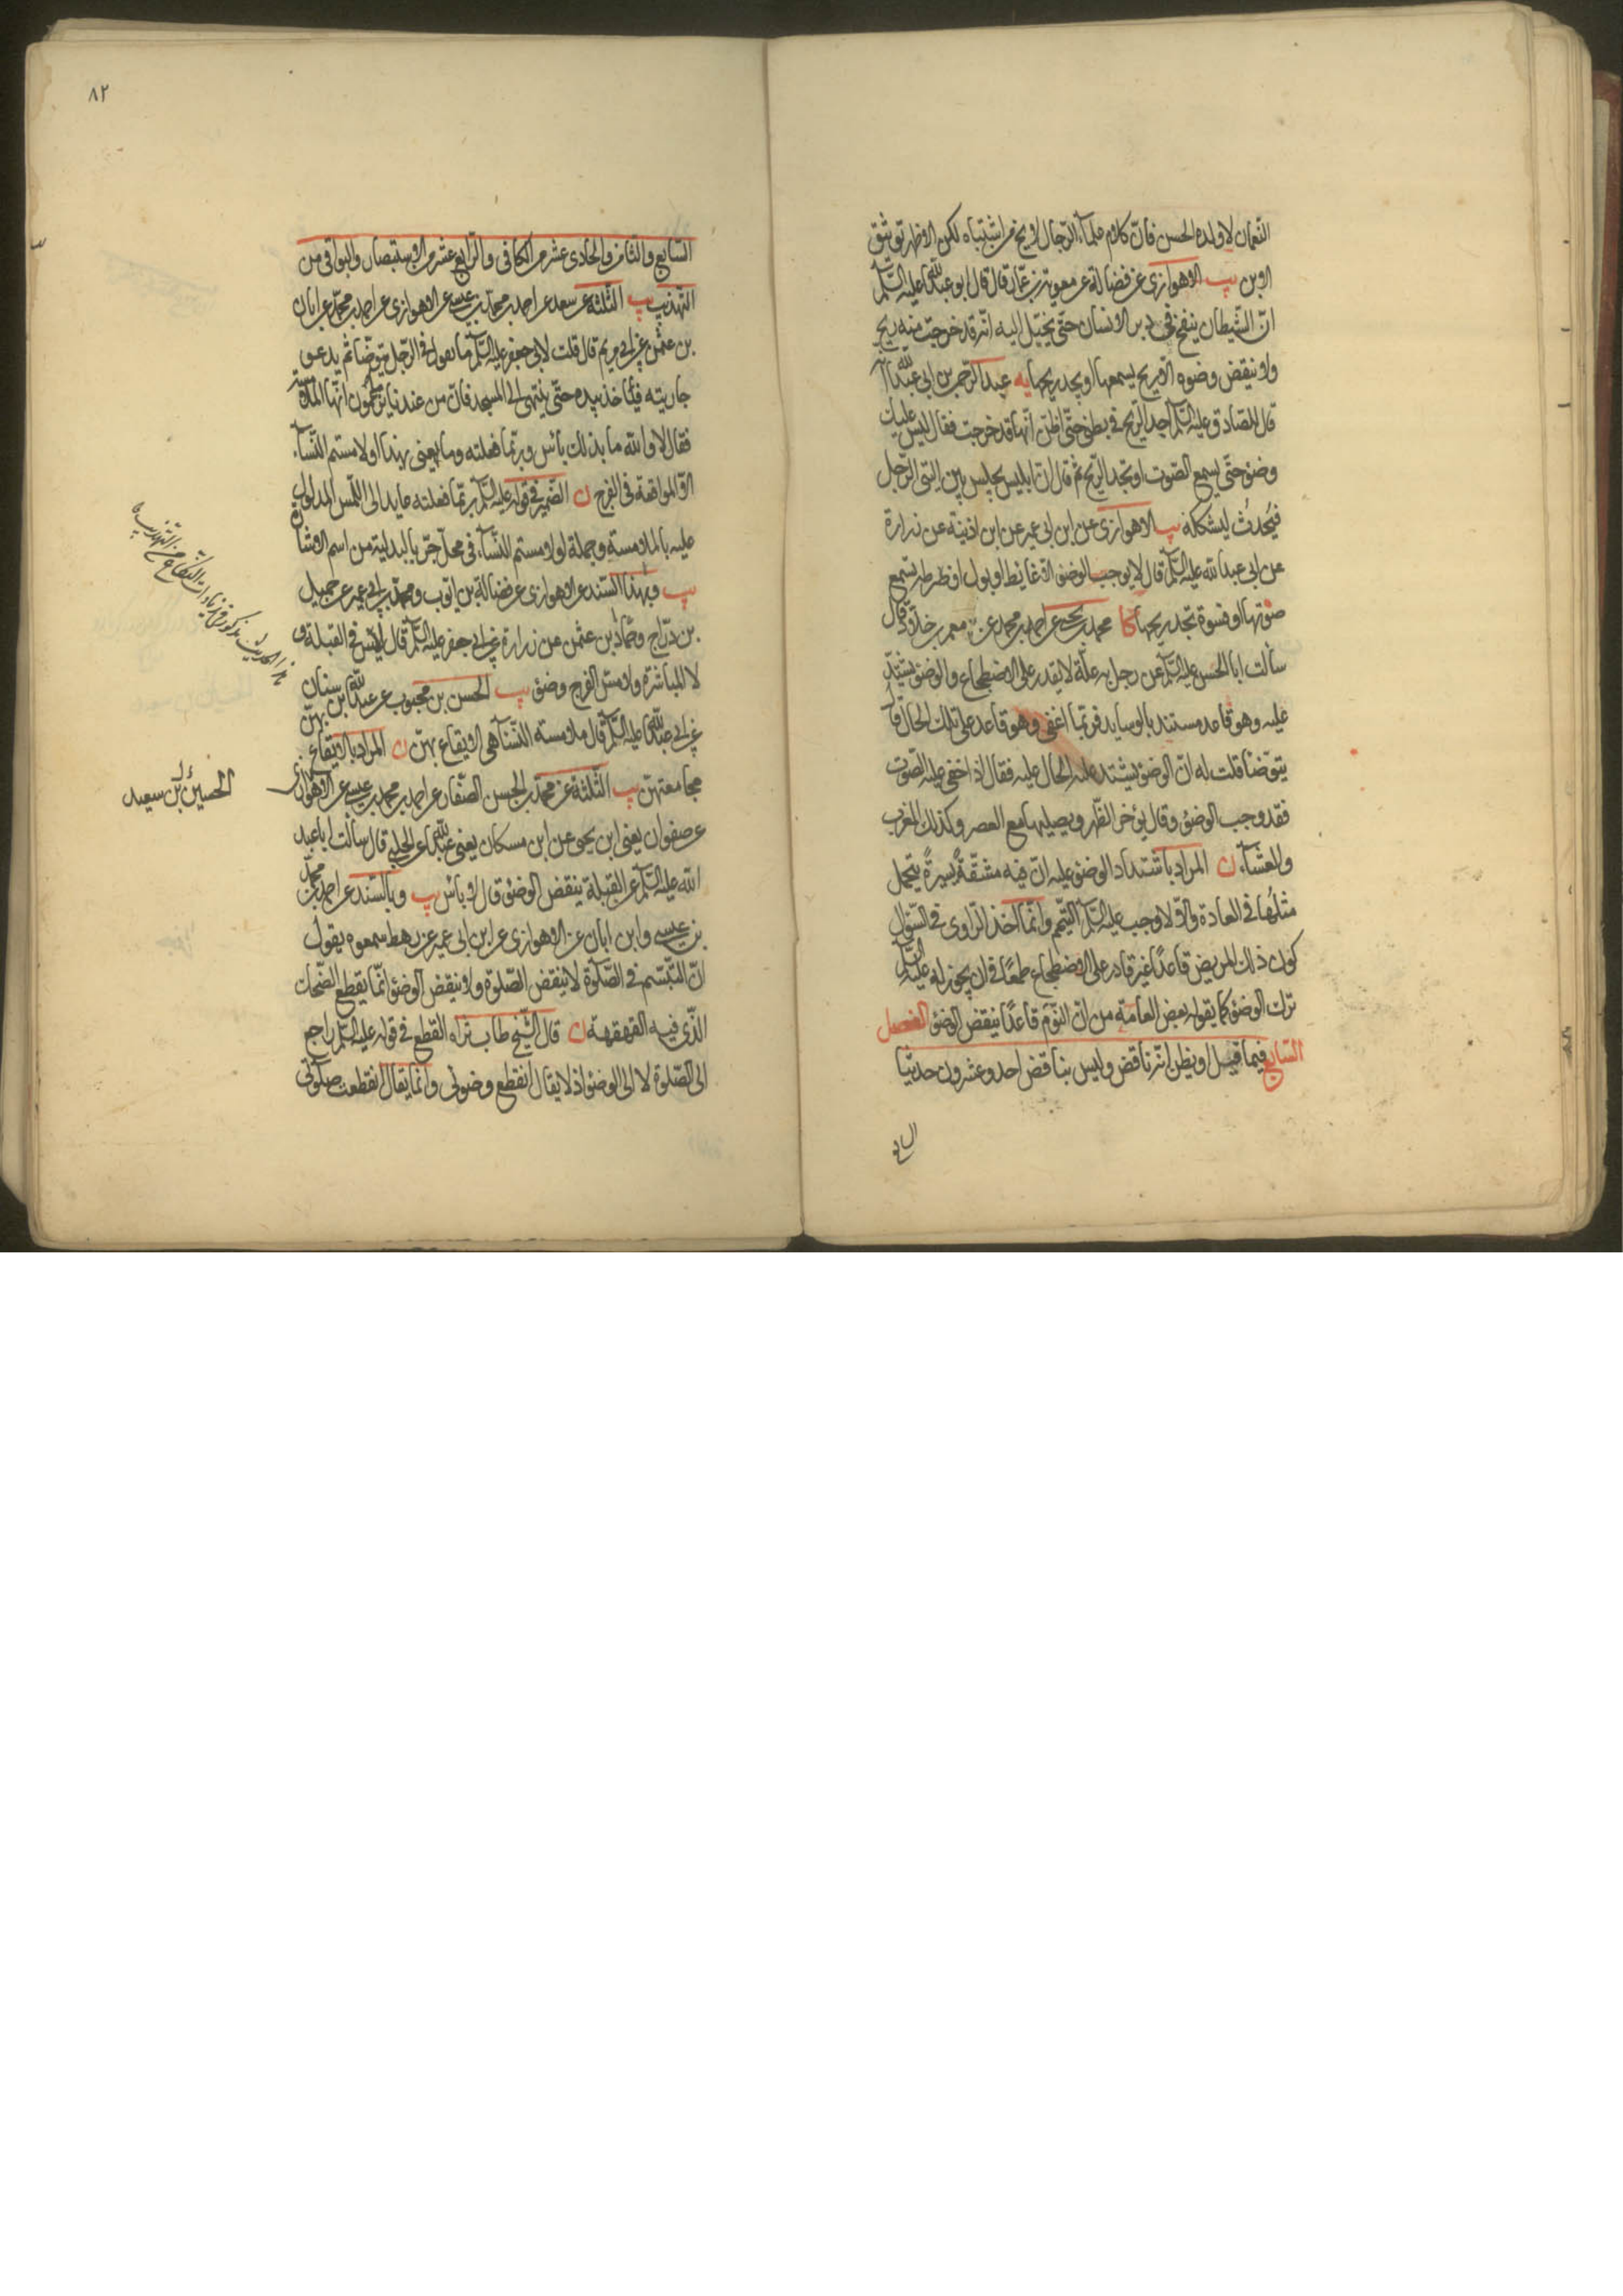 النعمان لا ولده الحسن فان كلام علماء الرجال لا يخ من اشتباه لكن الاظهر توثيق
الابن يب الاهوازى عن فضالة عن معوية بن عمار قال قال ابو عبدالله عليه السلم
ان الشيطان ينفخ فى دبر الانسان حتى يخيل اليه انه قد خرجت منه ريح
ولا ينقض وضوءه الا ريح يسمعها او يجد ريحها يه عبد الرحمن بن ابى عبدالله انه
قال للصادق عليه السلم اجد الريح فى بطنى حتى اظن انها قد خرجت فقال ليس عليك
وضوء حتى يسمع الصوت او تجد الريح ثم قال ان ابليس يجلس بين اليتى الرجل
فيحدث ليشككه يب الاهوازى عن ابن ابى عمير عن ابن اذينة عن زرارة
عن ابى عبد الله عليه السلم قال لا يوجب الوضوء الا غايط او بول او ضرطة تسمع
صوتها او فسوة تجد ريحها كا محمد بن يحيى عن احمد بن محمد عن معمر بن خلاد قال
سألت ابا الحسن عليه السلم عن رجل به علة لا يقدر على الاضطجاع والوضوء يشتد
عليه وهو قاعد مستند بالوسايد فربما اغفى وهو قاعد على تلك الحال قال
يتوضأ قلت له ان الوضوء يشتد عليه الحال عليه فقال اذا خفى عليه الصوت
فقد وجب الوضوء وقال يؤخر الظهر ويصليها مع العصر وكذلك المغرب
والعشاء ن المراد باشتداد الوضوء عليه ان فيه مشقة يسيرة يتحمل
مثلها فى العادة والا لاوجب عليه السلم التيمم وانما اخذ الراوى فى السؤال
كون ذلك المريض قاعدا غير قادر على الاضطجاع طمعا فى ان يجوز له عليه السلم
ترك الوضوء كما يقوله بعض العامة من ان النوم قاعدا لا ينقض الوضوء الفصل
السابع فيما قيل او يظن انه ناقض وليس بناقض احد وعشرون حديثا
٨٢
السابع والثامن والحادى عشر من الكافى والرابع عشر من الاستبصار والبواقى من
التهذيب يب الثلثة عن سعد عن احمد بن محمد بن عيسى عن الاهوازى عن احمد بن محمد عن ابان
بن عثمن عن ابى مريم قال قلت لابى جعفر عليه السلم ما تقول فى الرجل يتوضأ ثم يدعو
جاريته فيأخذ بيده حتى ينتهى الى المسجد فان من عندنا يزعمون انها الملامسة
فقال لا والله ما بذلك بأس وربما فعلته وما يعنى بهذا او لامستم النساء
الا المواقعة فى الفرج ن الضمير فى قوله عليه السلم ربما فعلته عايد الى اللمس المدلول
عليه بالملامسة وجملة او لامستم النساء فى محل جر بالبدلية من اسم الاشارة
يب وبهذا السند عن الاهوازى عن فضالة بن ايوب ومحمد بن ابى عمير عن جميل
بن دراج وحماد بن عثمن عن زرارة عن ابى جعفر عليه السلم قال ليس فى القبلة و
لا المباشرة ولا مس الفرج وضوء يب الحسن بن محبوب عن عبدالله بن سنان
عن ابى عبدالله عليه السلم قال ملامسة النساء هى الايقاع بهن ن المراد بالايقاع بهن
مجامعتهن يب الثلثة عن محمد بن الحسن الصفار عن احمد بن محمد بن عيسى عن الاهوازى
عن صفوان يعنى ابن يحيى عن ابن مسكان يعنى عبدالله عن الحلبى قال سألت ابا عبد
الله عليه السلم عن القبلة ينقض الوضوء قال لا بأس يب وبالسند عن احمد بن محمد
بن عيسى وابن ابان عن الاهوازى عن ابن ابى عمير عن رهط سمعوه يقول
ان التبسم فى الصلوة لا ينقض الصلوة ولا ينقض الوضوء انما يقطع الضحك
الذى فيه القهقهة ن قال الشيخ طاب ثراه القطع فى قوله عليه السلم راجع
الى الصلوة لا الى الوضوء اذ لا يقال انقطع وضوئى وانما يقال انقطعت صلوتى
هذا الحديث مذكور فى زيادات النكاح من التهذيب
الحسين بن سعيد